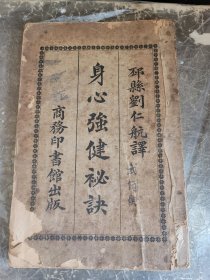 邳縣劉仁航譯
身心強健祕訣
商務印書館出版